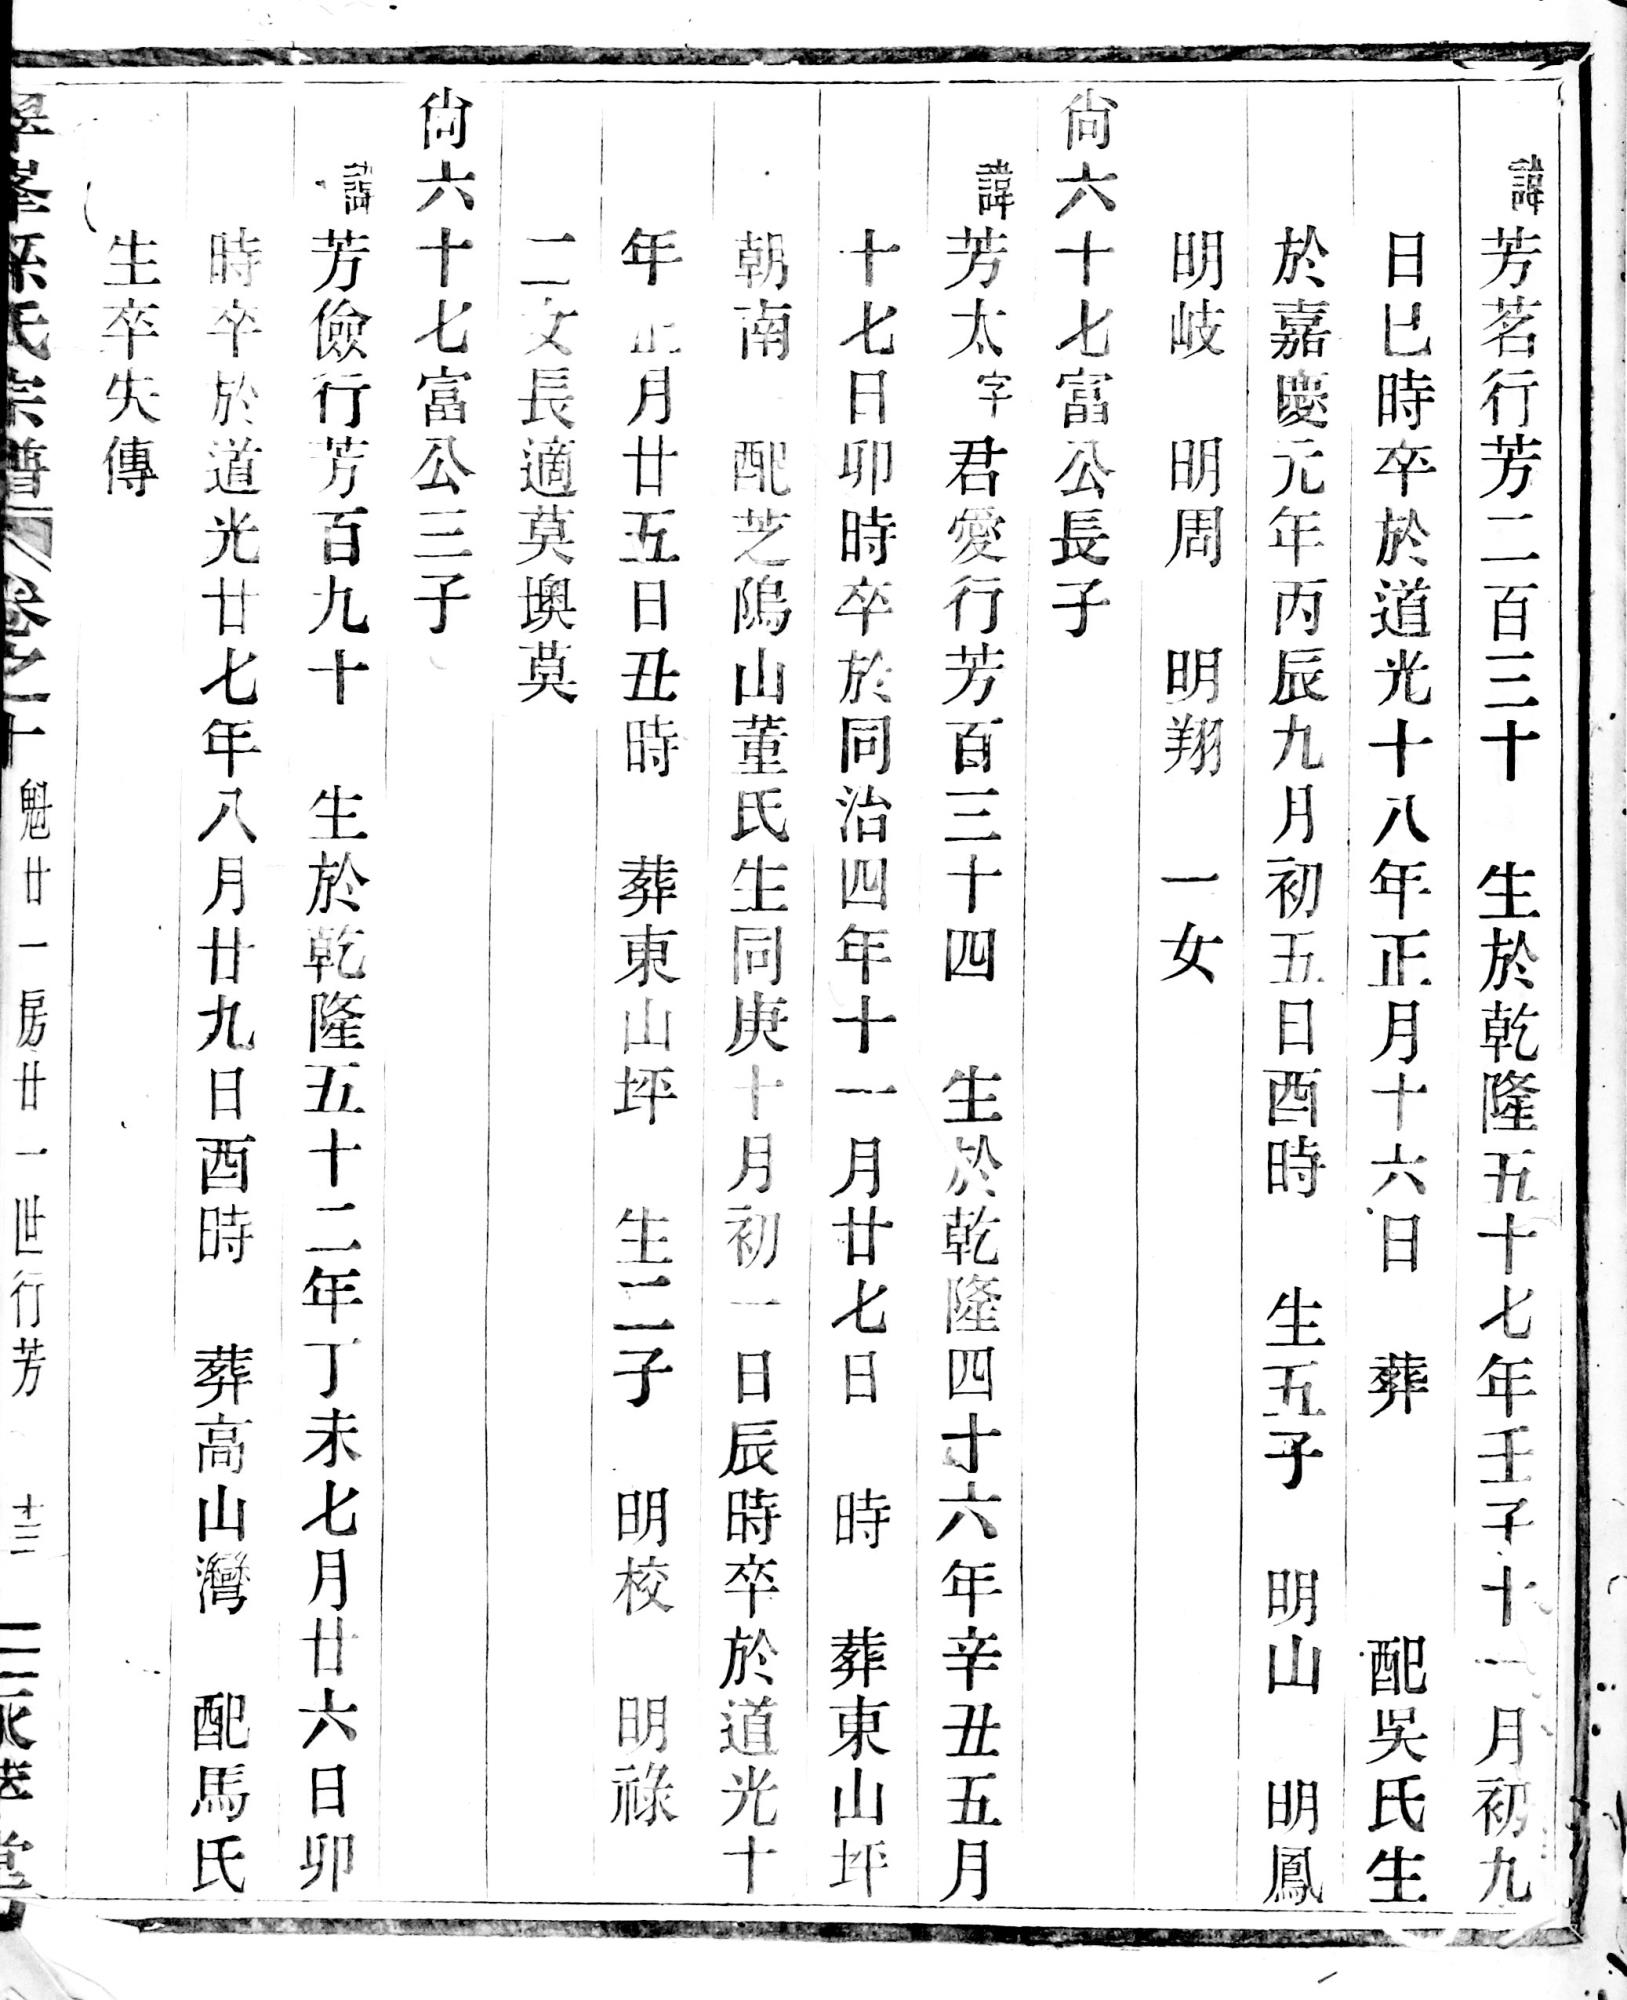 諱芳茗行芳二百三十 生於乾隆五十七年壬子十一月初九
日巳時卒於道光十八年正月十六日 葬 配吳氏生
於嘉慶元年丙辰九月初五日酉時 生五子 明山 明鳳
明岐 明周 明翔 一女
尙六十七富公長子
諱芳太字君愛行芳百三十四 生於乾隆四十六年辛丑五月
十七日卯時卒於同治四年十一月廿七日 時 葬東山坪
朝南 配芝隖山董氏生同庚十月初一日辰時卒於道光十
年正月廿五日丑時 葬東山坪 生二子 明校 明祿
二女長適莫墺莫
尙六十七富公三子
諱芳儉行芳百九十 生於乾隆五十二年丁未七月廿六日卯
時卒於道光廿七年八月廿九日酉時 葬高山灣 配馬氏
生卒失傳
峯孫氏宗譜 卷之十 魁廿一房廿一世行芳 十三 堂